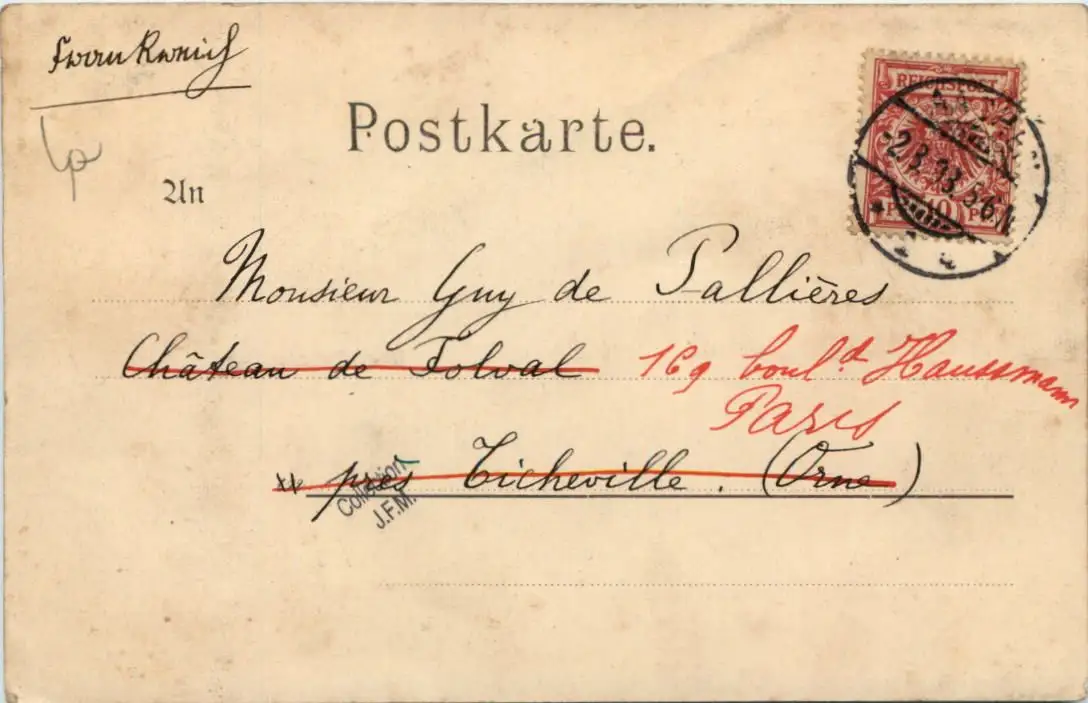 Frankreich
Postkarte.
REICHSPOST
An
-2.3.93.5-6N
10
Monsieur Guy de Pallières
Château de Folval 169 boul.d Haussmann
Paris
près Ticheville. (Orne)
Collection
J.F.M.